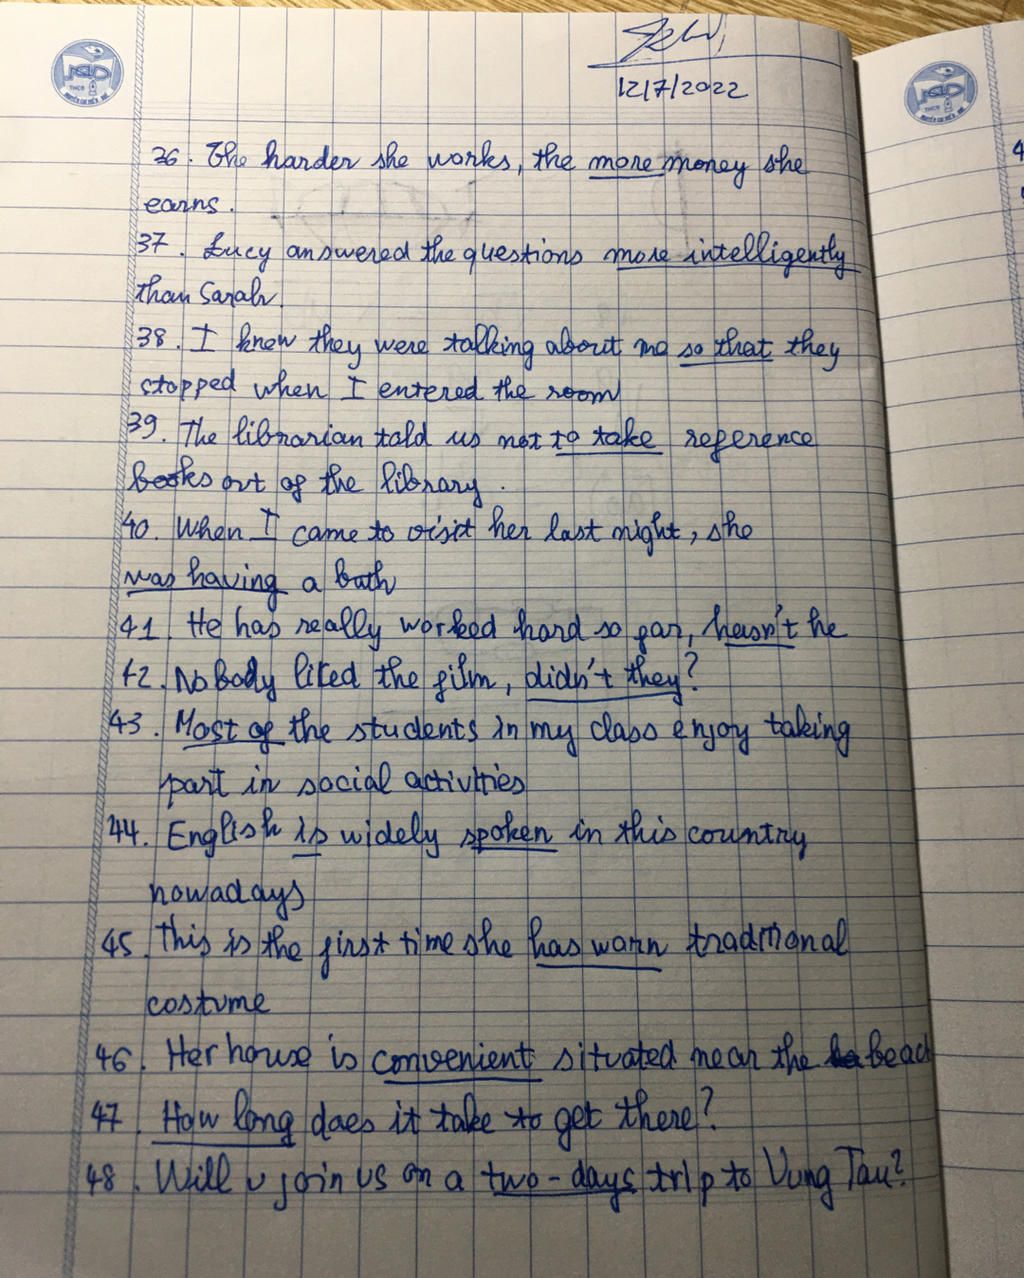 12/7/2022
36. The harder she works, the more money she
earns.
37. Lucy answered the questions more intelligently
than Sarah.
38. I knew they were talking about me so that they
stopped when I entered the room
39. The librarian told us not to take reference
books out of the library.
40. When I came to visit her last night, she
was having a bath
41. He has really worked hard so far, hasn't he
42. Nobody liked the film, didn't they?
43. Most of the students in my class enjoy taking
part in social activities
44. English is widely spoken in this country
nowadays
45. This is the first time she has worn traditional
costume
46. Her house is convenient situated near the beach
47. How long does it take to get there?
48. Will u join us on a two-days trip to Vung Tau?
THCS
THCS
4